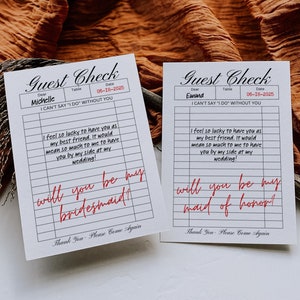 Guest Check
Dear Table Date
Michelle 06-15-2025
I CAN'T SAY "I DO" WITHOUT YOU
I feel so lucky to have you as
my best friend. It would
mean so much to me to have
you by my side at my
wedding!
will you be my
bridesmaid?
Thank You - Please Come Again
Guest Check
Dear Table Date
Emma 06-15-2025
I CAN'T SAY "I DO" WITHOUT YOU
I feel so lucky to have you as
my best friend. It would
mean so much to me to have
you by my side at my
wedding!
will you be my
maid of honor?
Thank You - Please Come Again